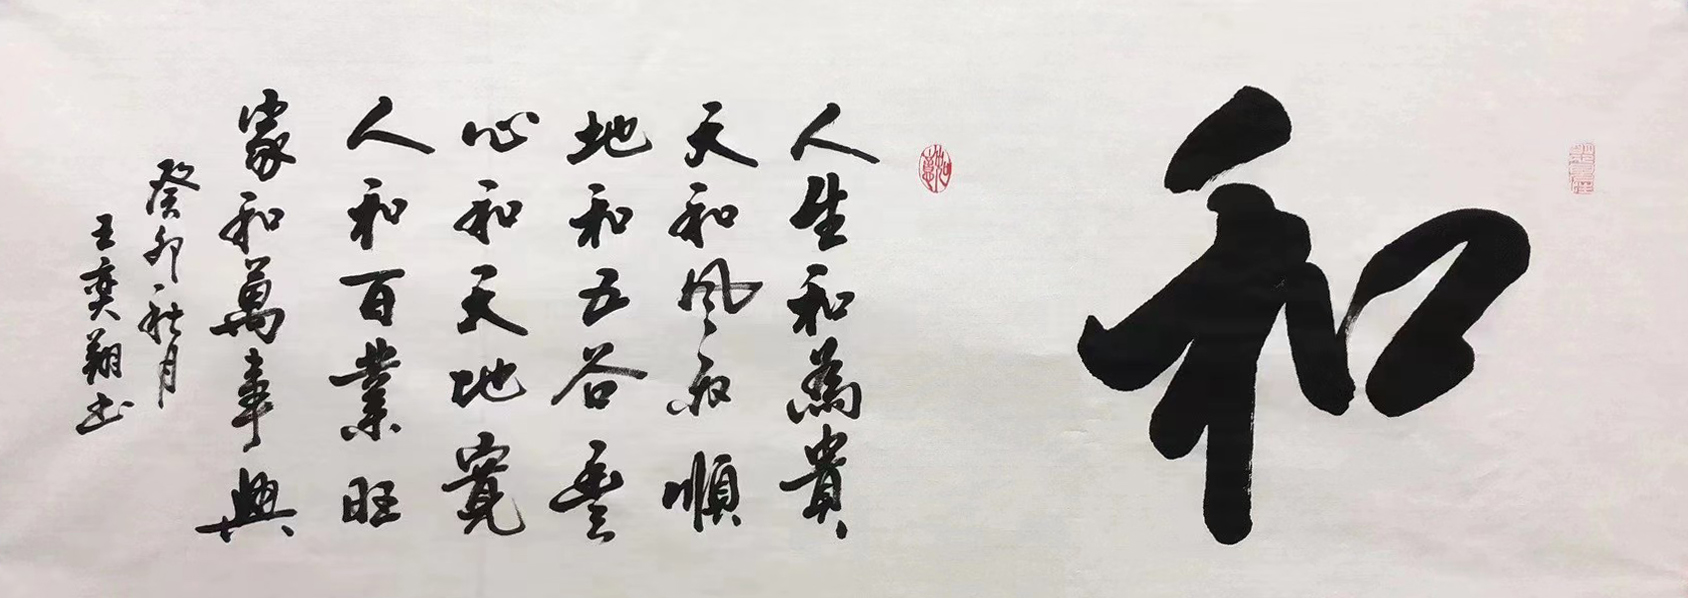 和
人生和為貴
天和風雨順
地和五谷豐
心和天地寬
人和百業旺
家和萬事興
癸卯秋月
王奕翔书